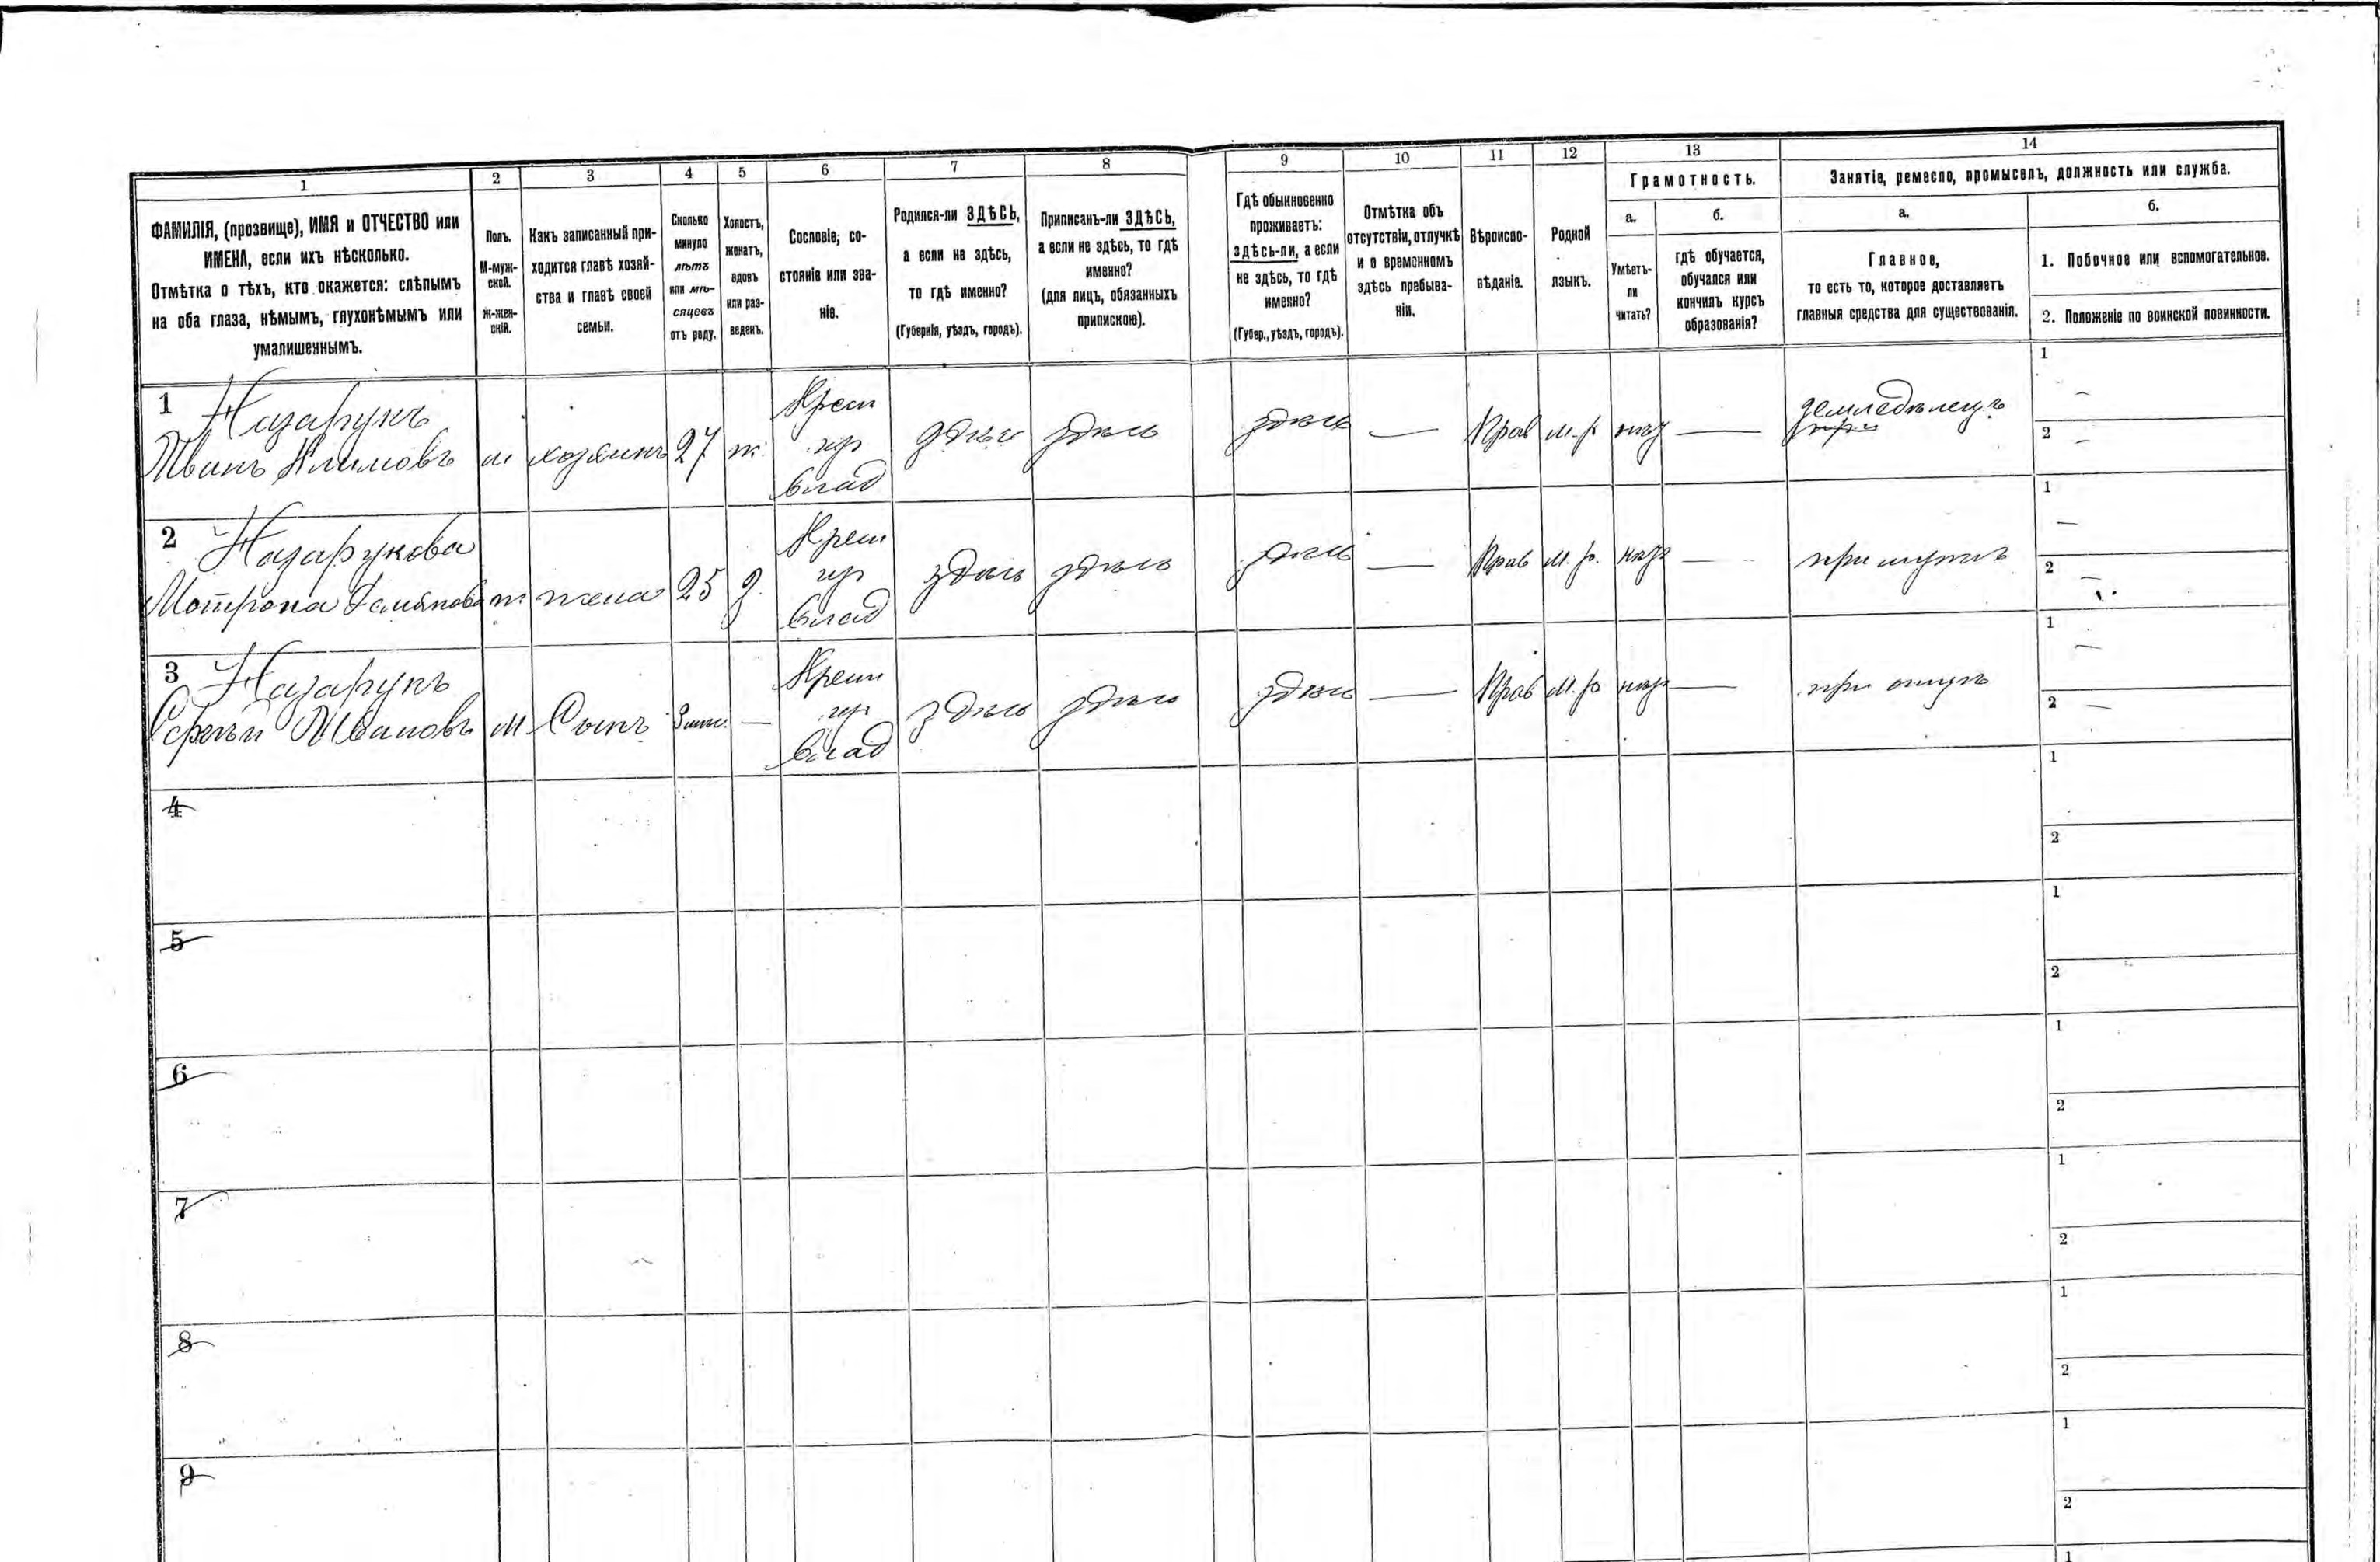 1 2 3 4 5 6 7 8 9 10 11 12 13 14
ФАМИЛІЯ, (прозвище), ИМЯ и ОТЧЕСТВО или
ИМЕНА, если ихъ нѣсколько.
Отмѣтка о тѣхъ, кто окажется: слѣпымъ
на оба глаза, нѣмымъ, глухонѣмымъ или
умалишеннымъ.
Полъ.
М-муж-
ской.
Ж-жен-
скій.
Какъ записанный при-
ходится главѣ хозяй-
ства и главѣ своей
семьи.
Сколько
минуло
лѣтъ
или мѣ-
сяцевъ
отъ роду.
Холостъ,
женатъ,
вдовъ
или раз-
веденъ.
Сословіе, со-
стояніе или зва-
ніе.
Родился-ли ЗДѢСЬ,
а если не здѣсь,
то гдѣ именно?
(Губернія, уѣздъ, городъ).
Приписанъ-ли ЗДѢСЬ,
а если не здѣсь, то гдѣ
именно?
(для лицъ, обязанныхъ
припискою).
Гдѣ обыкновенно
проживаетъ:
здѣсь-ли, а если
не здѣсь, то гдѣ
именно?
(Губер., уѣздъ, городъ).
Отмѣтка объ
отсутствіи, отлучкѣ
и о временномъ
здѣсь пребыва-
ніи.
Вѣроиспо-
вѣданіе.
Родной
языкъ.
Грамотность.
а.
Умѣетъ-
ли
читать?
б.
гдѣ обучается,
обучался или
кончилъ курсъ
образованія?
Занятіе, ремесло, промыселъ, должность или служба.
а.
Главное,
то есть то, которое доставляетъ
главныя средства для существованія.
б.
1. Побочное или вспомогательное.
2. Положеніе по воинской повинности.
1 Назарукъ
Иванъ Климовъ м хозяинъ 27 ж.
Крест
влад
здѣсь здѣсь здѣсь — Прав м.р — земледѣлецъ
1 —
2 —
2 Назарукова
Мотрона ж. жена 25 з.
Крест
влад
здѣсь здѣсь здѣсь — Прав м.р. — при мужѣ
1 —
2 —
3 Назарукъ
Ивановъ м Сынъ —
Крест
влад
здѣсь здѣсь здѣсь — Прав м.р — при отцѣ
1 —
2 —
4
1
2
5
1
2
6
1
2
7
1
2
8
1
2
9
1
2
1